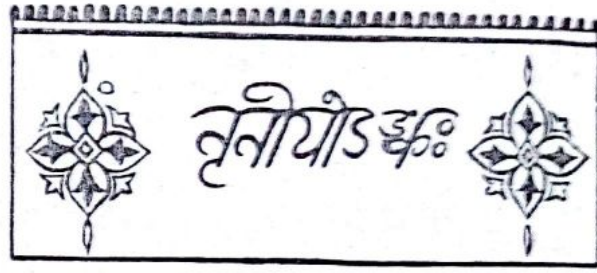 तृतीयोऽङ्कः